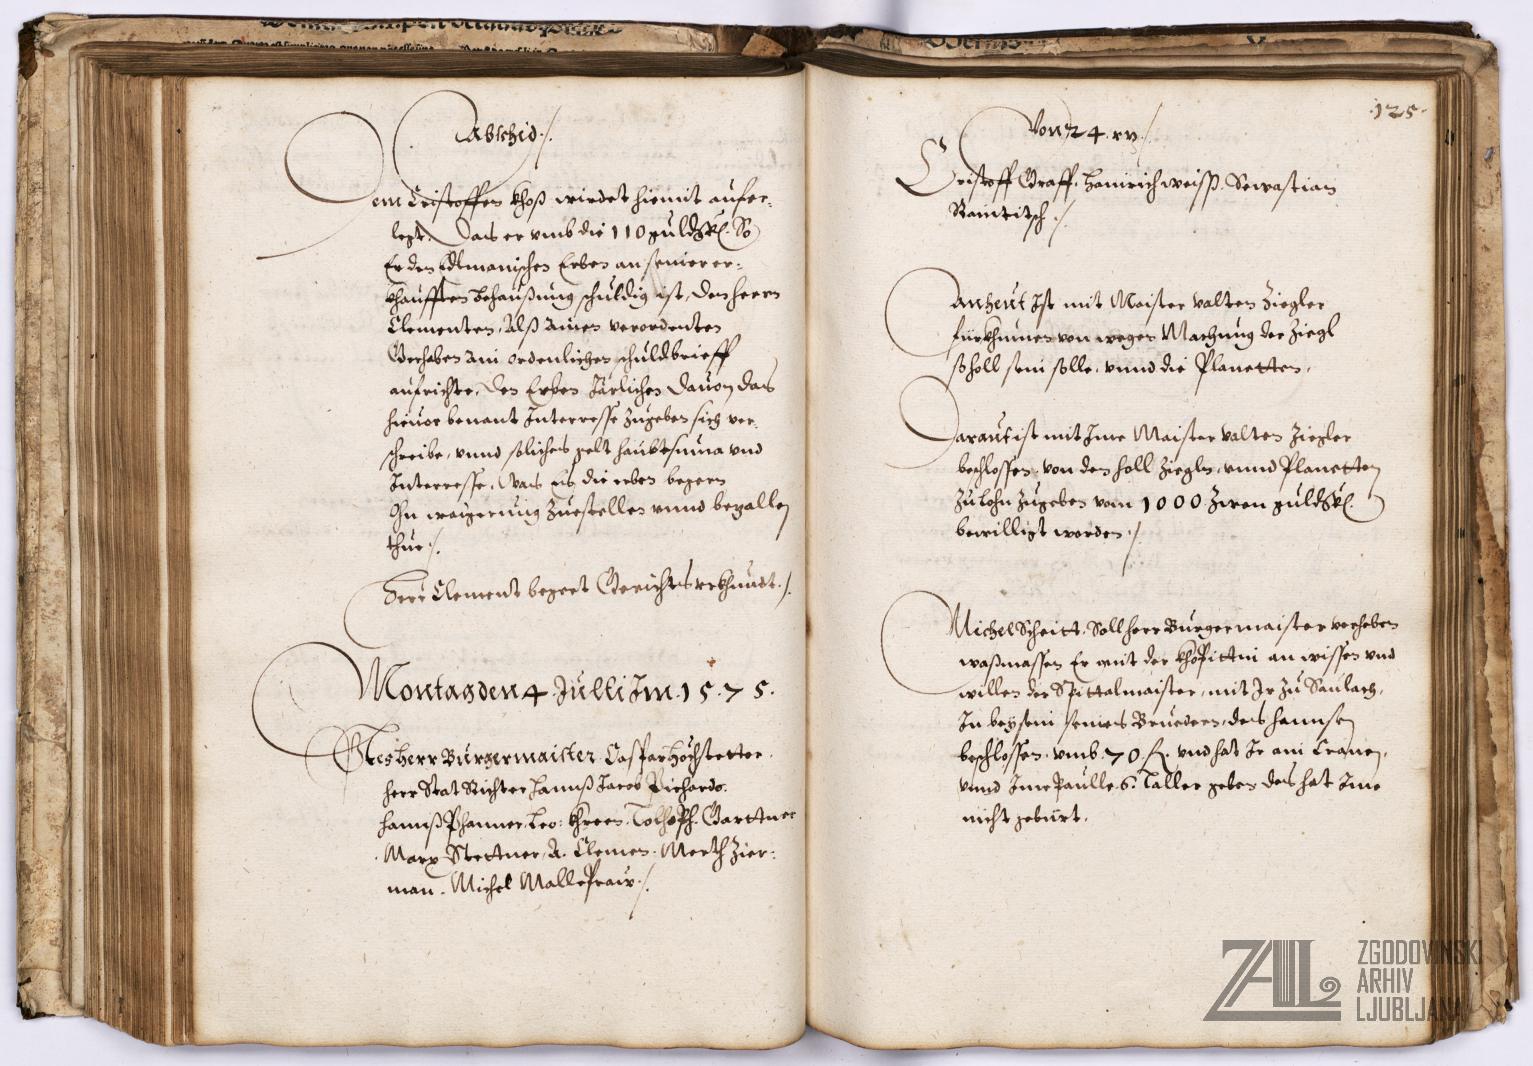 Abschid ./.
Dem Cristoffen Khoß wirdet hiemit aufer-
legt. Das er vmb die 110 guld. So
Er den Erben an seiner er-
khaufften behaußung schuldig ist, den herrn
Clementen, Alß ainen verordenten
Gerhaben ain ordenlichen schuldbrieff
aufrichte, den Erben Järlichen dauon das
hieuor benant Interresse zugeben sich ver-
schreibe, vnnd solliches gelt haubtsuma vnd
Interresse, die erben begern
On waigerung zuestellen vnnd bezallen
thue ./.
Herr Clement begert Gerichts vrkhundt ./.
Montag den 4 Julli Im 1575.
Herr Burgermaister Caspar Höchstetter.
herr Stat Richter hannß Jacob
hannß Phanner, Leo: Khreen. Garttner
Marx Stettner, A. Clemen. Merth Zier-
man. Michel
.125.
Von 24 ./.
Cristoff Graff. hainrich weiss. Sewastian
./.
Anheut Ist mit Maister valten Ziegler
fürkhumen von wegen Machung der Ziegl
soholl sein solle, vnnd die Planetten.
Darauf ist mit Ime Maister valten Ziegler
beschlossen, von den holl Ziegln, vnnd Planetten
Zu lohn Zugeben vom 1000 Zwen guld.
bewilligt worden ./.
Michel Scheitt. Soll herr Burgermaister verheben
waßmassen Er mit der an wissen vnd
willen der Spittalmaister, mit Ir zu
In beysein seines Brueders, des hannsen
beschlossen. vmb 70 fl. vnd hat Ir ain Cronen,
vnnd Ime Paulle 6. Taller geben des hat Ime
nicht geburt.
ZAL
ZGODOVINSKI
ARHIV
LJUBLJANA